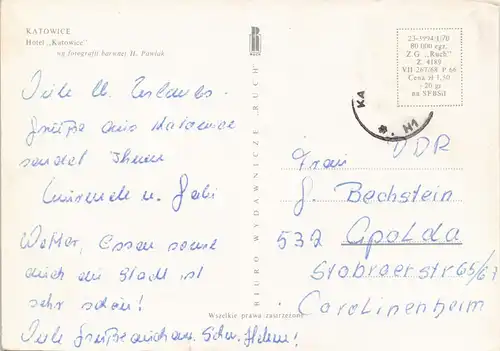 KATOWICE
Hotel „Katowice"
wg fotografii barwnej H. Pawlak
Viele Urlaubs-
grüße aus Katowice
sendet Ihnen
u. Gabi
Wetter, Essen sowie
auch die Stadt ist
sehr schön!
Viele Grüße auch an Schw. Helene!
BIURO WYDAWNICZE „RUCH"
Wszelkie prawa zastrzeżone
RUCH
23-3994 I/70
80 000 egz.
Z.G „Ruch"
Z. 4189
VII 267/68 P 66
Cena zł 1,50
+20 gr
na SFBSI
KA
* N1
DDR
Frau
G. Bechstein
532 Apolda
Stobraerstr 65/67
Carolinenheim